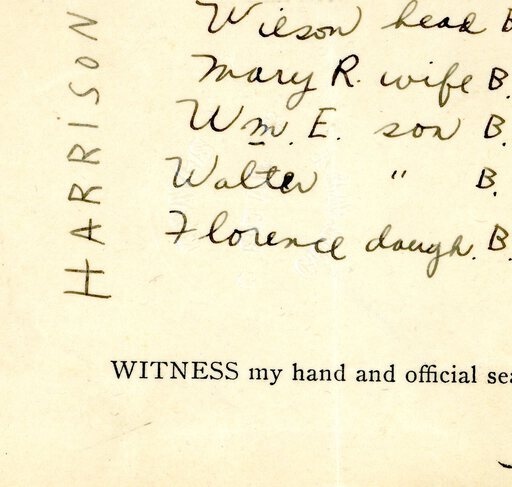 HARRISON
Wilson head B
Mary R. wife B.
Wm. E. son B.
Walter " B.
Florence daugh. B.
WITNESS my hand and official sea